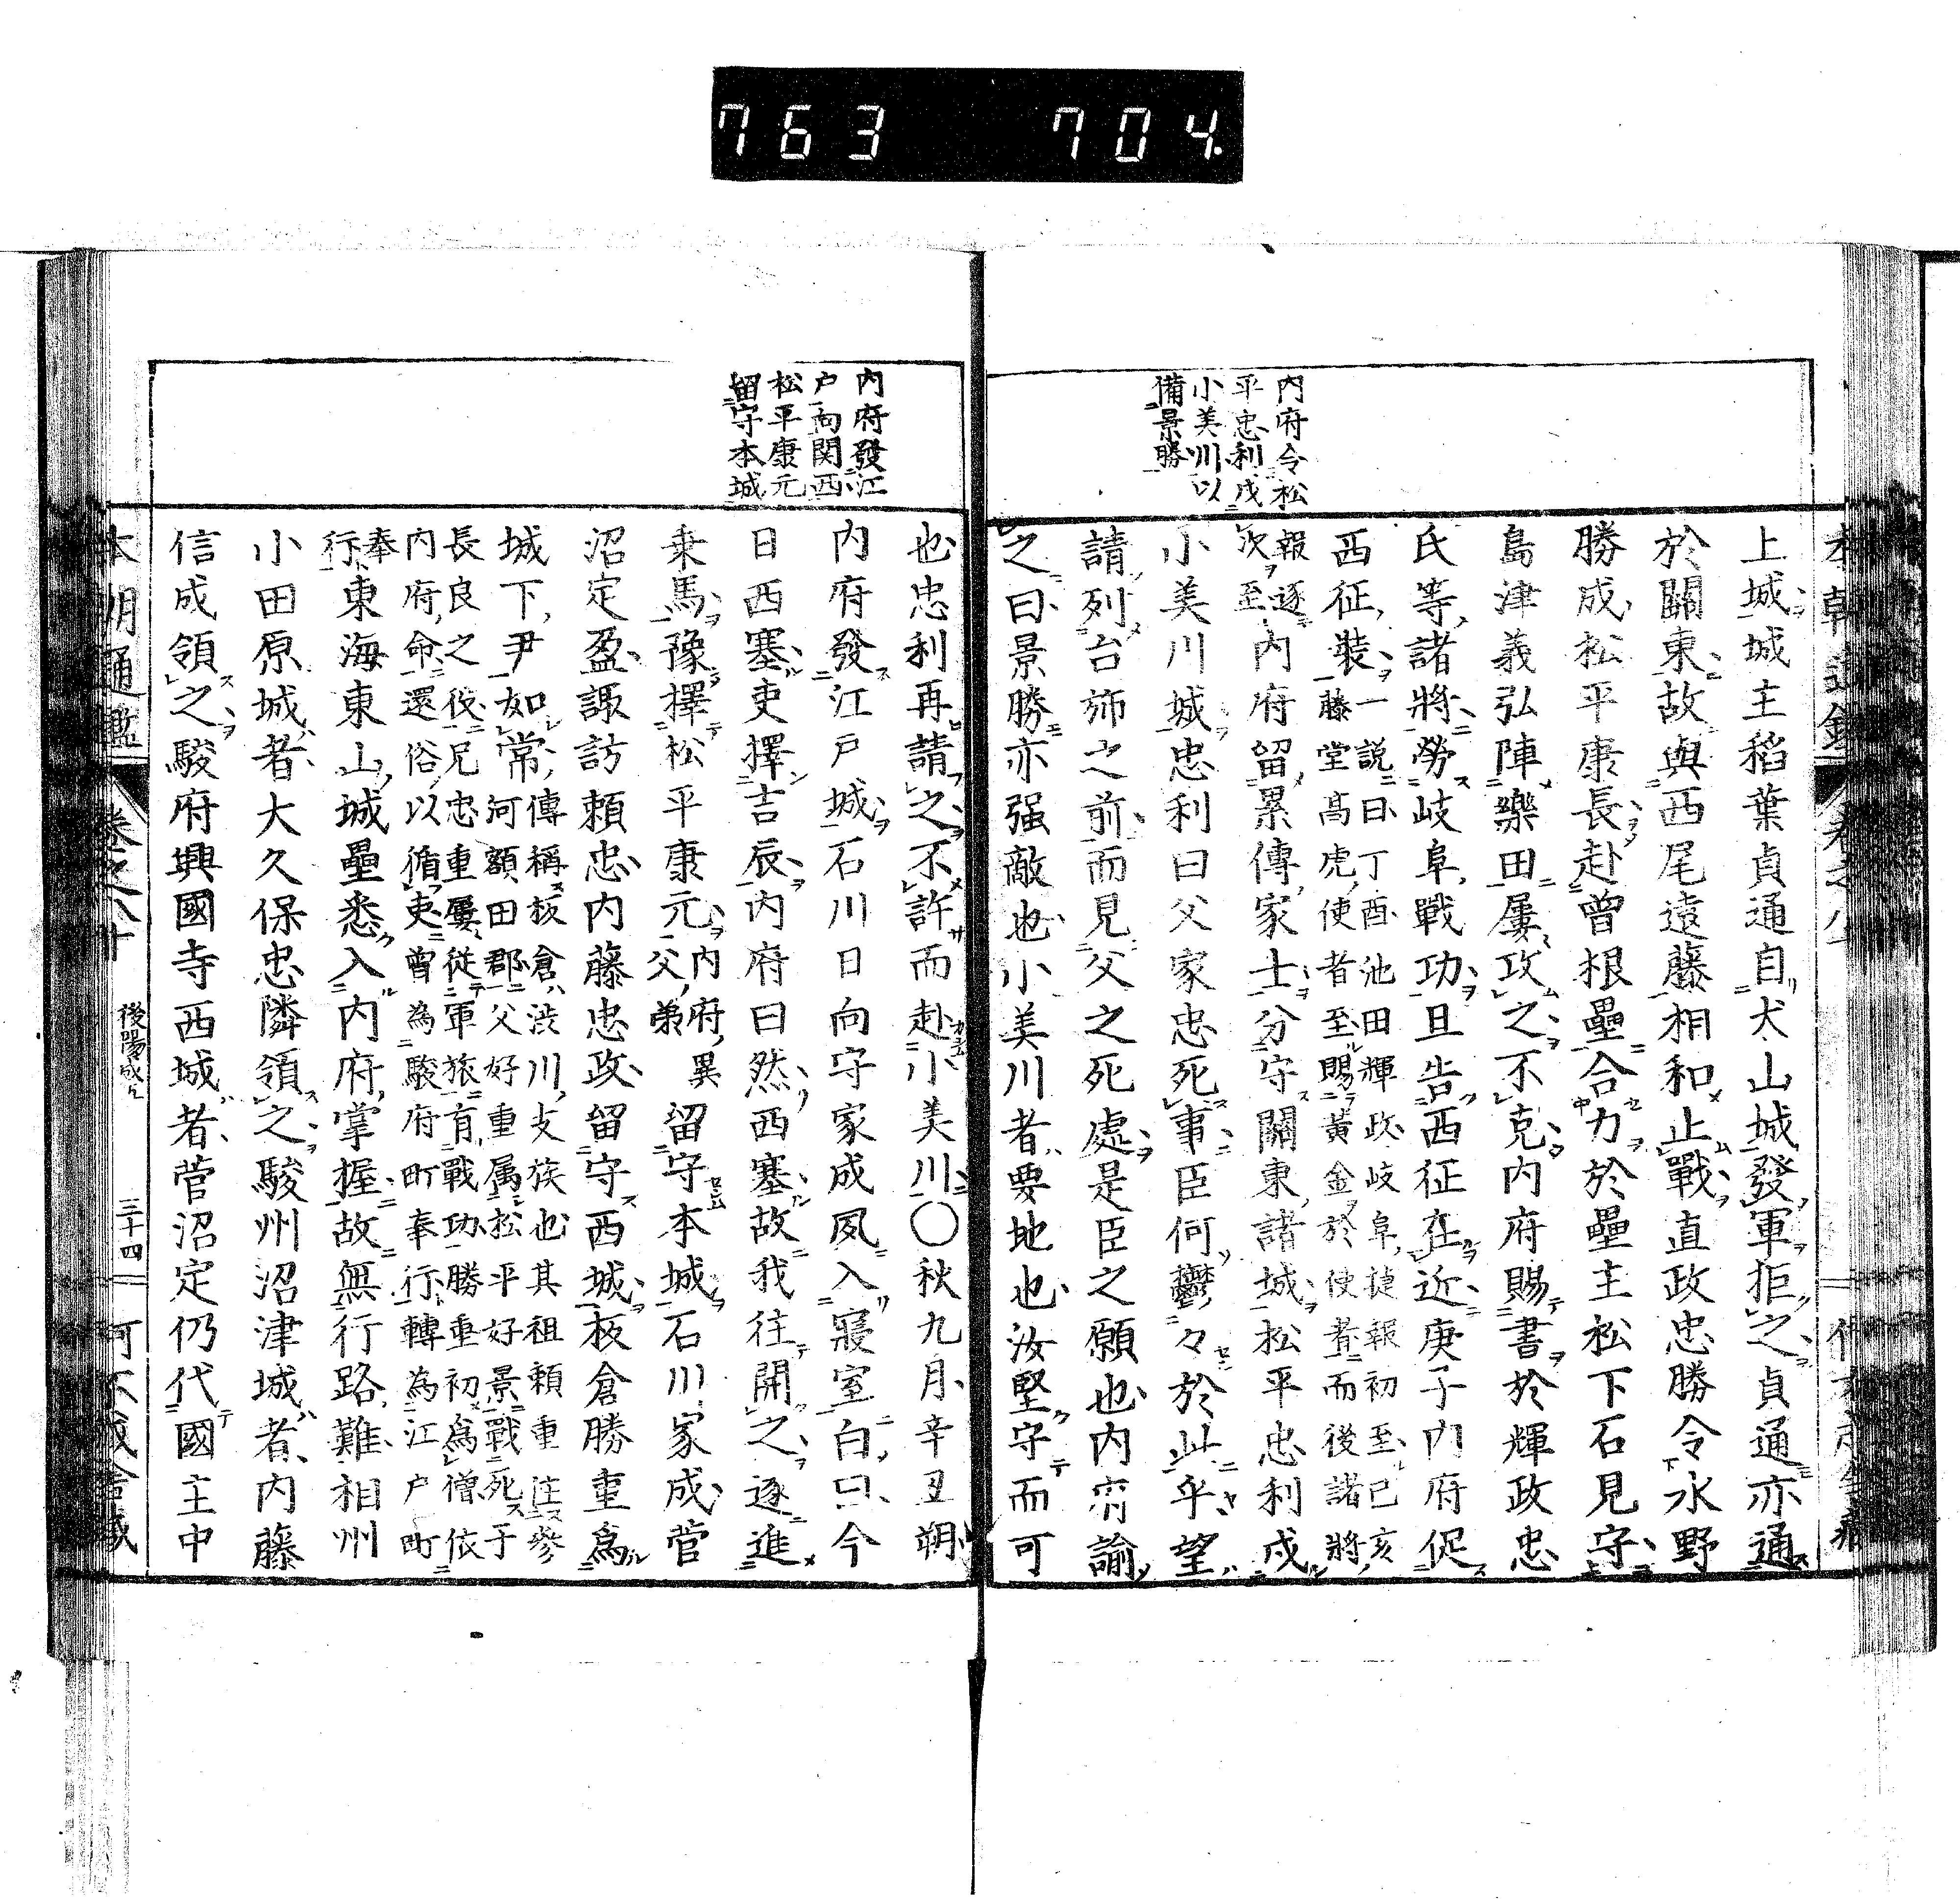 763 704
内府令松
平忠利戍
小美川以
備景勝
上城城主稻葉貞通自犬山城發軍拒之貞通亦通
於關東故與西尾遠藤相和止戰直政忠勝令水野
勝成松平康長赴曾根壘合力於壘主松下石見守
島津義弘陣樂田屢攻之不克内府賜書於輝政忠
氏等諸將勞岐阜戰功且告西征在近庚子内府促
西征裝一説曰丁酉池田輝政岐阜捷報初至己亥
藤堂高虎使者至賜黃金於使者而後諸將
報逐
次至内府留累傳家士分守關東諸城松平忠利戍
小美川城忠利曰父家忠死事臣何鬱々於此乎望
請列台斾之前而見父之死處是臣之願也内府諭
之曰景勝亦强敵也小美川者要地也汝堅守而可
内府發江
户向関西
松平康元
留守本城
也忠利再請之不許而赴小美川〇秋九月辛丑朔
内府發江戸城石川日向守家成夙入寢室白曰今
日西塞吏擇吉辰内府曰然西塞故我往開之逐進
乗馬豫擇松平康元内府異
父弟留守本城石川家成菅
沼定盈諏訪頼忠内藤忠政留守西城板倉勝重爲
城下尹如常傳稱板倉渋川支族也其祖頼重住參
河額田郡父好重属松平好景戰死于
長良之役兄忠重屢從軍旅有戰功勝重初爲僧依
内府命還俗以循吏曾為駿府町奉行轉為江户町
奉
行東海東山城壘悉入内府掌握故無行路難相州
小田原城者大久保忠隣領之駿州沼津城者内藤
信成領之駿府興國寺西城者菅沼定仍代國主中
本朝通鑑 卷之八十 後陽成 三十四